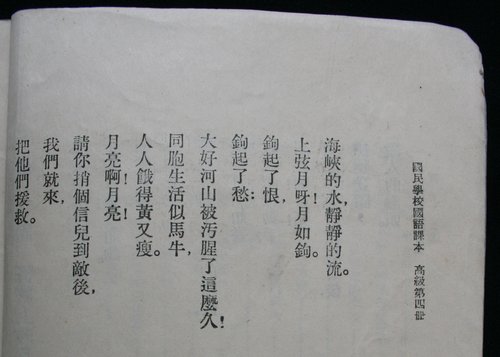 國民學校國語課本 高級第四册
海峽的水，靜靜的流。
上弦月呀！月如鉤。
鉤起了恨，
鉤起了愁：
大好河山被污腥了這麼久！
同胞生活似馬牛，
人人餓得黃又瘦。
月亮啊月亮！
請你捎個信兒到敵後，
我們就來，
把他們援救。